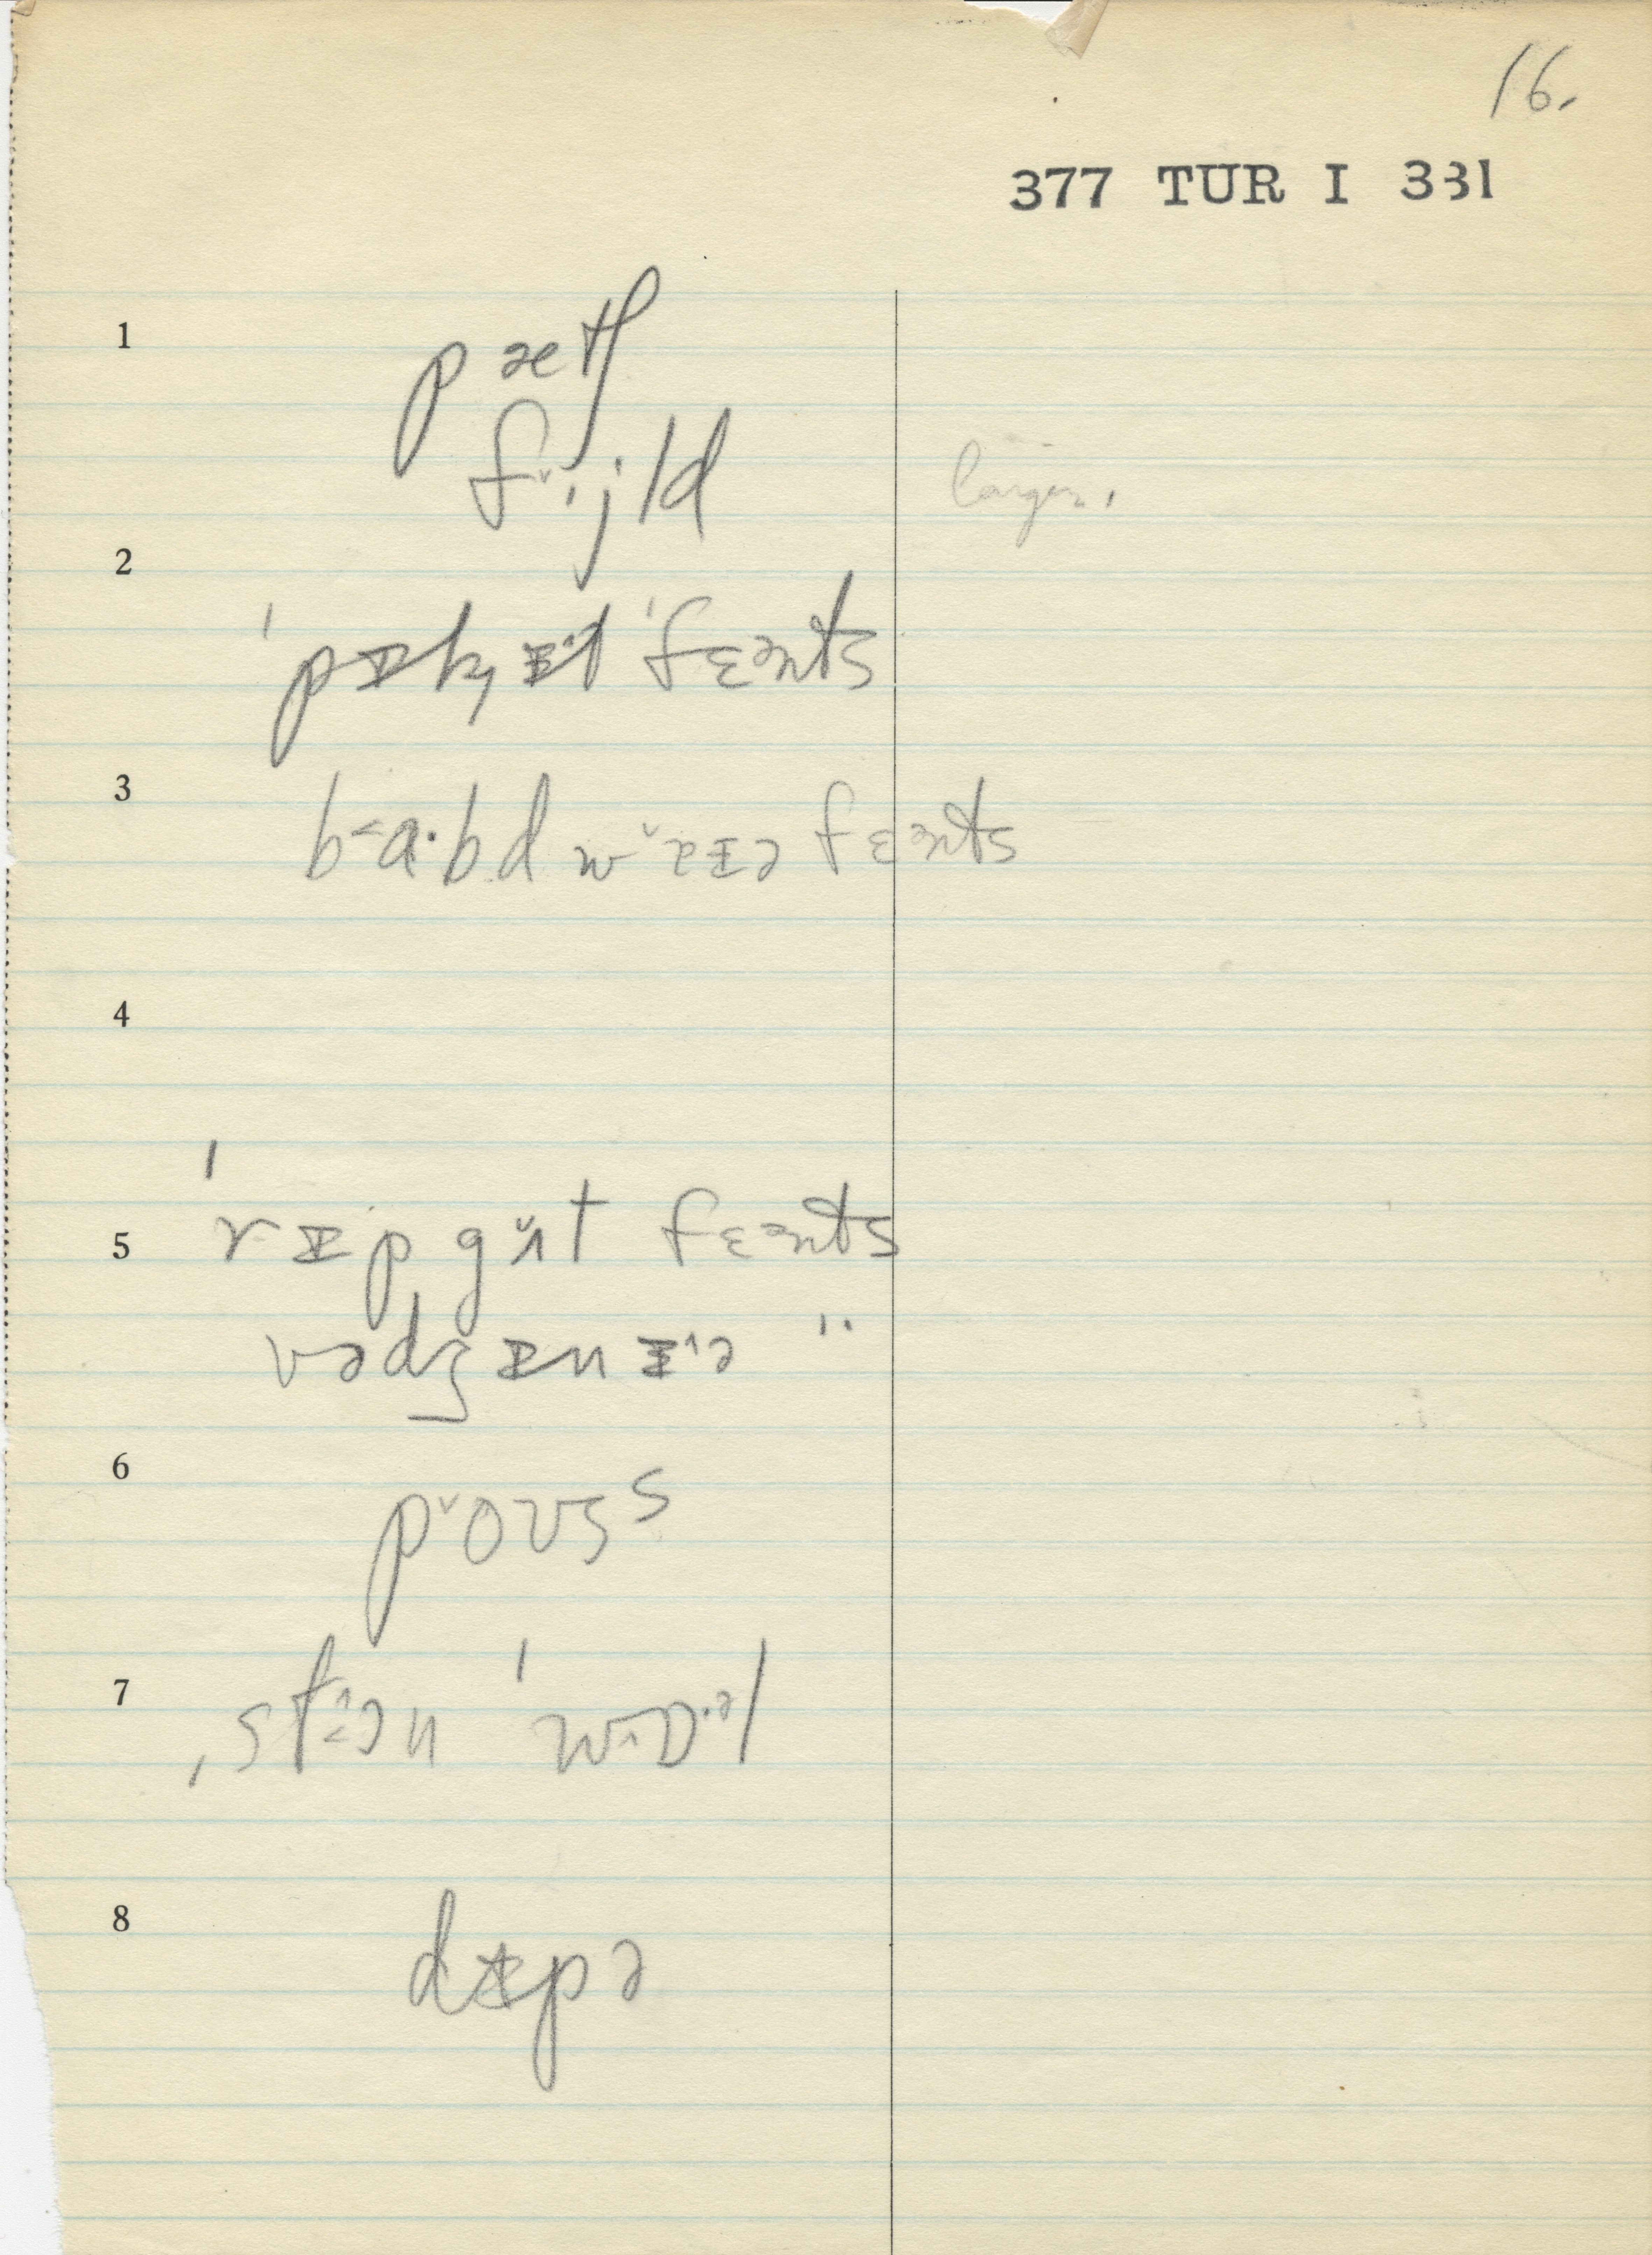 16.
377 TUR I 331
1 pætʃ
fˇi·jld larger.
2 ˈpɪkɪt ˈfɛənts
3 b˂a·bd wˇɐɪə fɛənts
4
5 ˈrɪp gˇʌt fɛənts
vədʒɪnɪ^ə "
6 pˇoʊsˢ
7 ˌst^ən ˈw^ɒ·əl
8 dɪpə